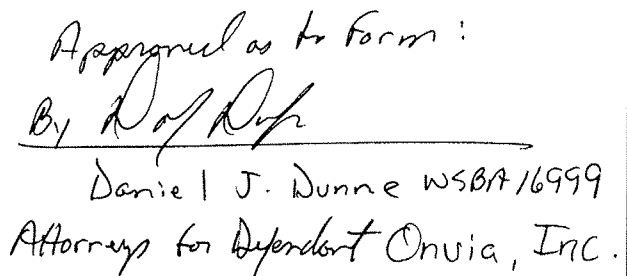 Approved as to Form:
By
Daniel J. Dunne WSBA 16999
Attorneys for Defendant Onvia, Inc.